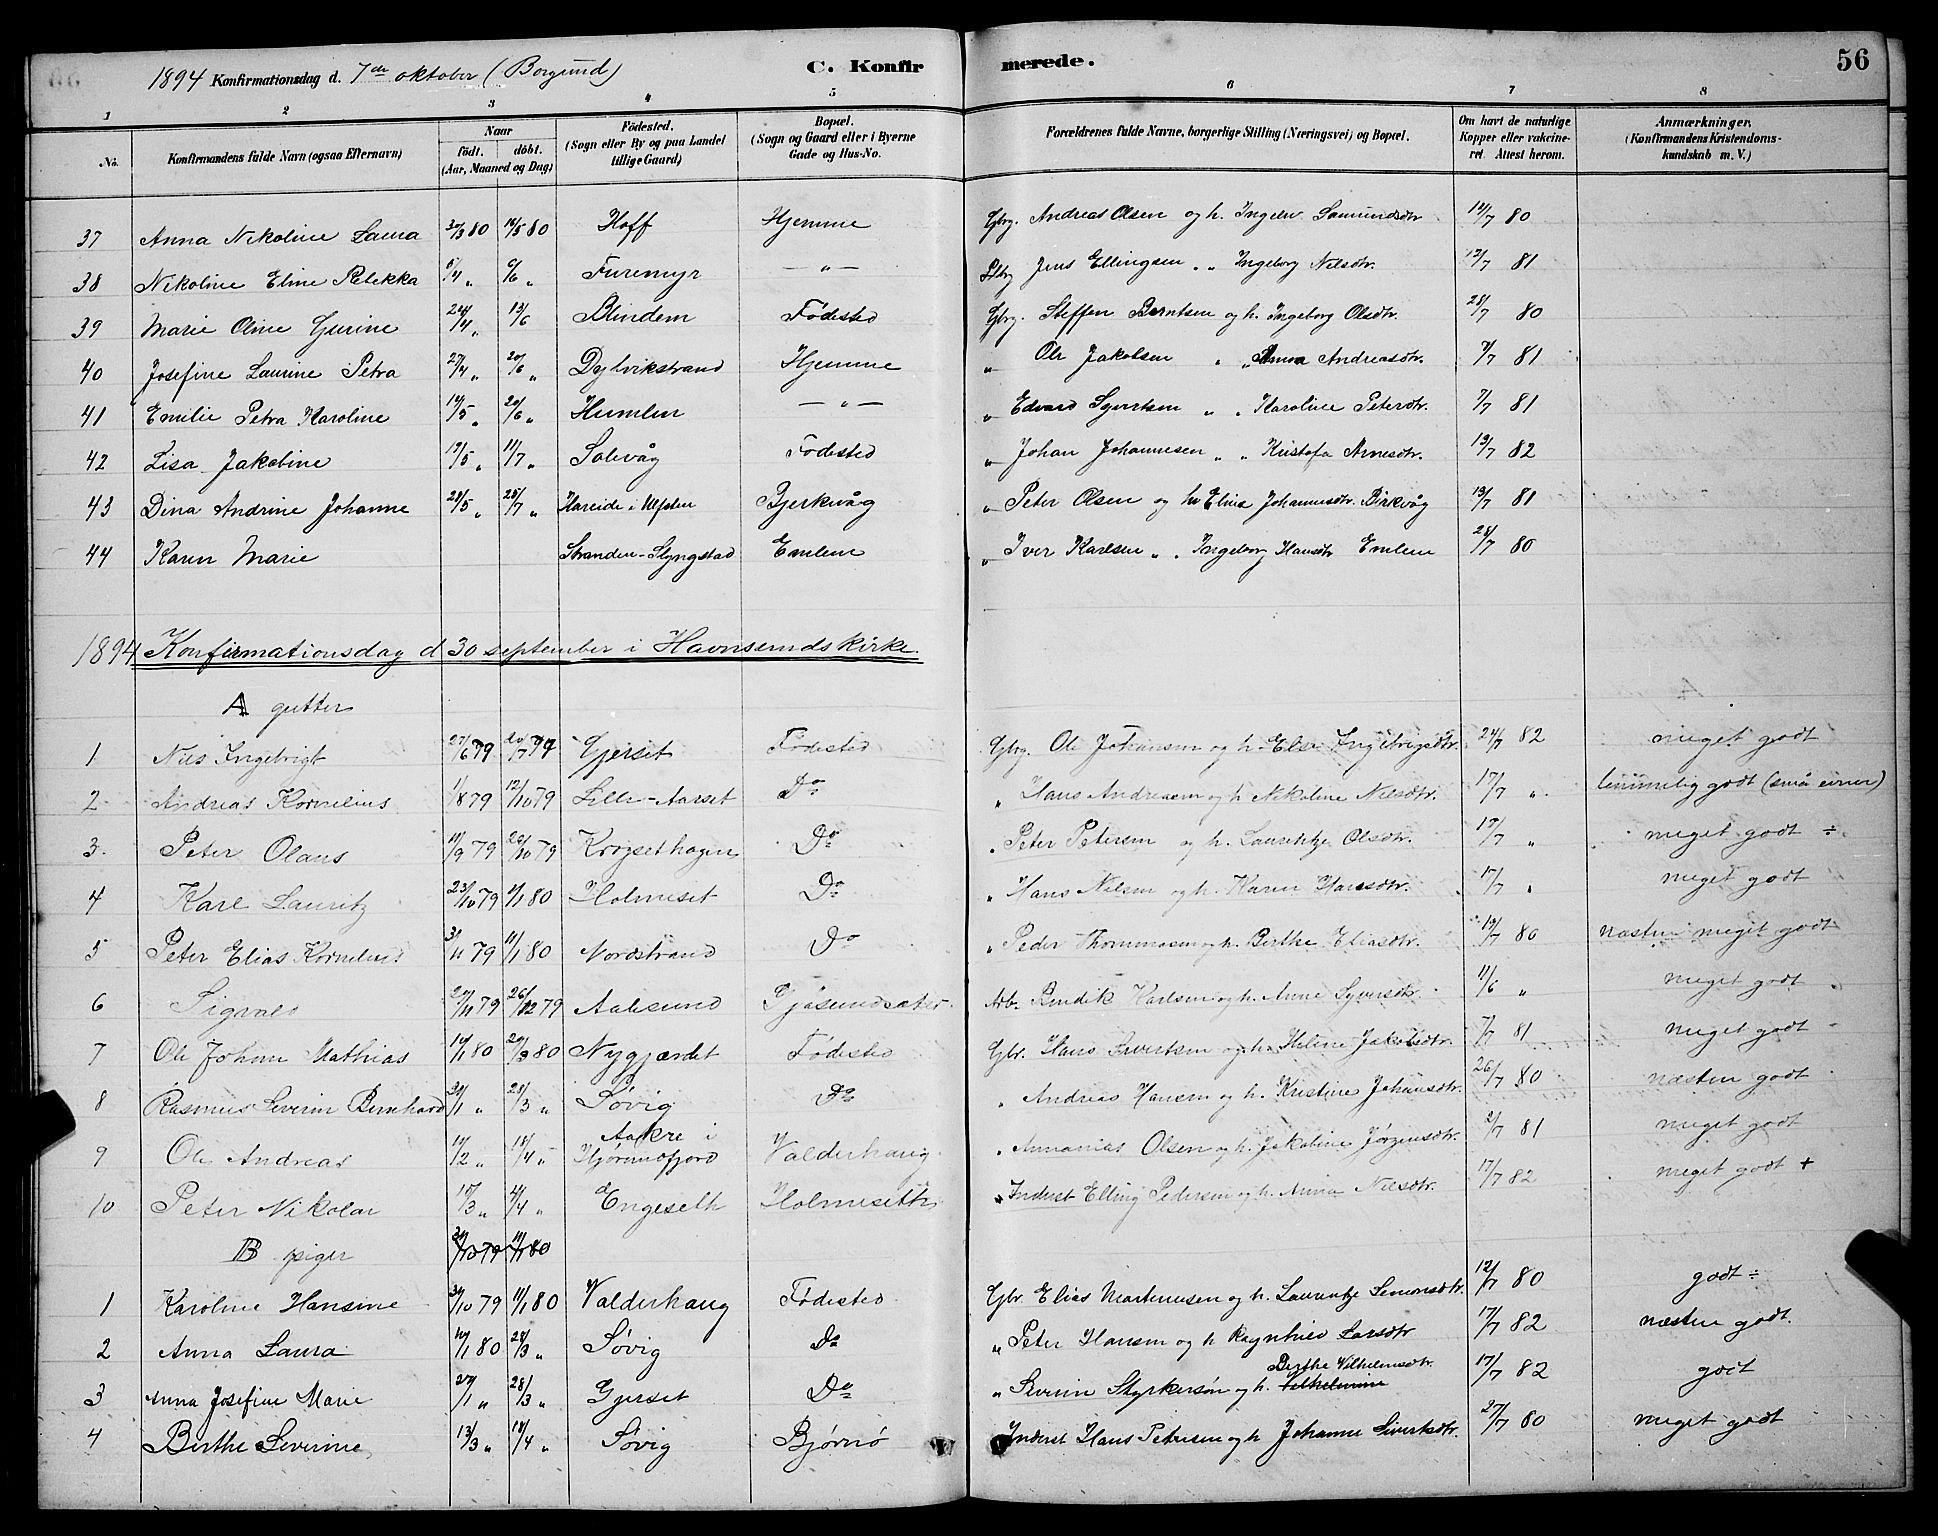 1894 Konfirmationsdag d. 7de oktober (Borgund) C. Konfirmerede. 56
1 2 3 4 5 6 7 8
No. Konfirmandens fulde Navn (ogsaa Efternavn) Naar født. døbt. (Aar, Maaned og Dag) Fødested. (Sogn eller By og paa Landet tillige Gaard) Bopæl. (Sogn og Gaard eller i Byerne Gade og Hus-No. Forældrenes fulde Navne, borgerlige Stilling (Næringsvei) og Bopæl. Om havt de naturlige Kopper eller vakcineret. Attest herom. Anmærkninger. (Konfirmandens Kristendomskundskab m. V.)
37 Anna Nikoline Laura 30/3 80 16/5 80 Hoff Hjemme Gbrg. Andreas Olsen og h. Ingeb. Samundsdtr. 14/7 80
38 Nikoline Eline Rebekka 5/4 " 6/6 " Furemyr — " — Jens Ellingsen " Ingeborg Nilsdtr. 12/7 81
39 Marie Oline Gurine 24/4 " 13/6 Blindem Fødested Gbrg. Steffen Berntsen og h. Ingeborg Olsdtr. 28/7 80
40 Josefine Laurine Petra 27/4 " 20/6 " Dylvikstrand Hjemme " Ole Jakobsen " " Anna Andreasdtr. 7/7 81
41 Emilie Petra Karoline 14/5 " 20/6 " Humlen — " — " Edvard Syvertsen " " Karoline Petersdtr. 7/7 81
42 Lisa Jakobine 19/5 " 11/7 " Solevåg Fødested " Johan Johannesen " " Kristofa Arnesdtr. 13/7 82
43 Dina Andrine Johanne 28/5 " 25/7 " Hareide i Ulfsten Bjerkvåg " Peter Olsen og h. Eline Johannesdtr. Birkvåg 13/7 81
44 Karen Marie Stranden-Slyngstad Emlem " Iver Karlsen " " Ingeborg Hansdtr Emlem 28/7 80
1894 Konfirmationsdag d 30 september i Havnsunds kirke.
A gutter
1 Nils Ingebrigt 27/6 79 20/7 79 Gjerset Fødested Gbrg. Ole Johansen og h. Else Ingebrigtsdtr. 24/7 82 meget godt
2 Andreas Kornelius 1/8 79 12/10 79 Lille-Aarset Do " Hans Andreasen og h. Nikoline Nilsdtr. 17/7 " temmelig godt (små evner)
3 Peter Olaus 11/9 79 20/10 79 Krøgsethagen Do " Peter Petersen og h. Laurentze Olsdtr. 17/7 " meget godt ÷
4 Karl Lauritz 23/10 79 4/1 80 Holmeset Do " Hans Nilsen og h. Karen Hansdtr. 17/7 " meget godt
5 Peter Elias Kornelius 3/11 79 11/1 80 Nordstrand Do " Peder Thommasen og h. Berthe Eliasdtr. 19/7 80 næsten meget godt
6 Sigvald 20/11 79 26/12 79 Aalesund Gjøsundsæter Arb. Bendik Karlsen og h. Anne Syversdtr. 11/6 " meget godt
7 Ole Johan Mathias 14/1 80 29/3 80 Nygjærdet Fødested Gbr. Hans Sivertsen og h. Heline Jakobsdtr. 7/7 81 meget godt
8 Rasmus Severin Bernhard 30/1 " 28/3 " Søvig Do " Andreas Hansen og h. Kristine Johansdtr. 26/7 80 næsten godt
9 Ole Andreas 14/2 " 18/4 " Aakre i Hjørundfjord Valderhaug " Annanias Olsen og h. Jakobine Jørgensdtr. 2/7 81 meget godt
10 Peter Nikolai 15/3 " 4/4 " Engeseth Holmeseth " Inderst Elling Pedersen og h. Anna Nilsdtr. 17/7 82 meget godt +
B piger 30/10 79 11/1 80
1 Karoline Hansine 30/10 79 11/1 80 Valderhaug Fødested Gbr. Elias Martinusen og h. Laurentze Simonsdtr. 12/7 80 godt ÷
2 Anna Laura 10/1 80 28/3 " Søvig Do " Peter Hansen og h. Ragnhild Larsdtr 17/7 82 næsten godt.
3 Anna Josefine Marie 27/1 " 28/3 " Gjerset Do " Severin Styrkersøn og h. Vilhelmine Berthe Vilhelmsdtr. 17/7 82 godt
4 Berthe Severine 13/3 " 18/4 " Søvig Bjørnø Inderst Hans Petersen og h. Johanne Sivertsdtr. 27/7 80 meget godt